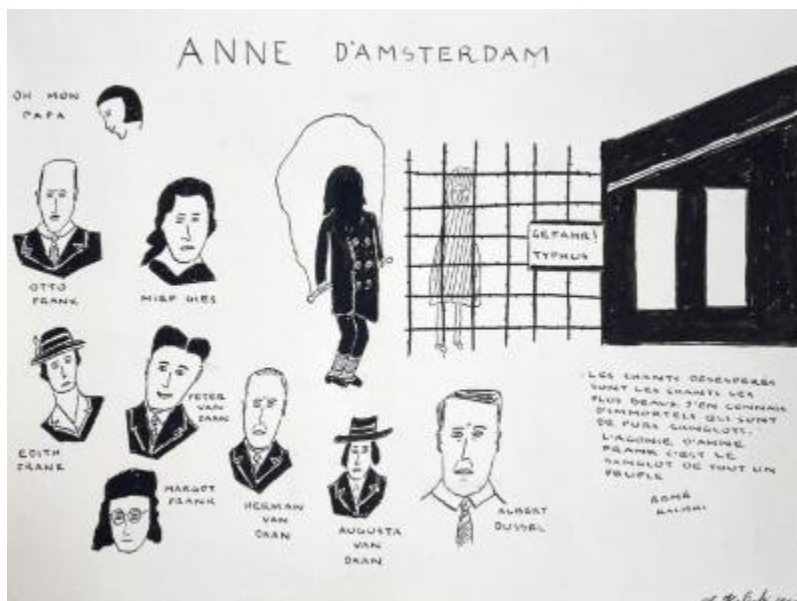 ANNE D'AMSTERDAM
OH MON
PAPA
OTTO
FRANK
MIEP GIES
EDITH
FRANK
PETER
VAN
DAAN
MARGOT
FRANK
HERMAN
VAN
DAAN
AUGUSTA
VAN
DAAN
ALBERT
DUSSEL
GEFAHR!
TYPHUS
LES CHANTS DESESPERÉS
SONT LES CHANTS LES
PLUS BEAUX J'EN CONNAIS
D'IMMORTELS QUI SONT
DE PURS SANGLOTS.
L'AGONIE D'ANNE
FRANK C'EST LE
SANGLOT DE TOUT UN
PEUPLE